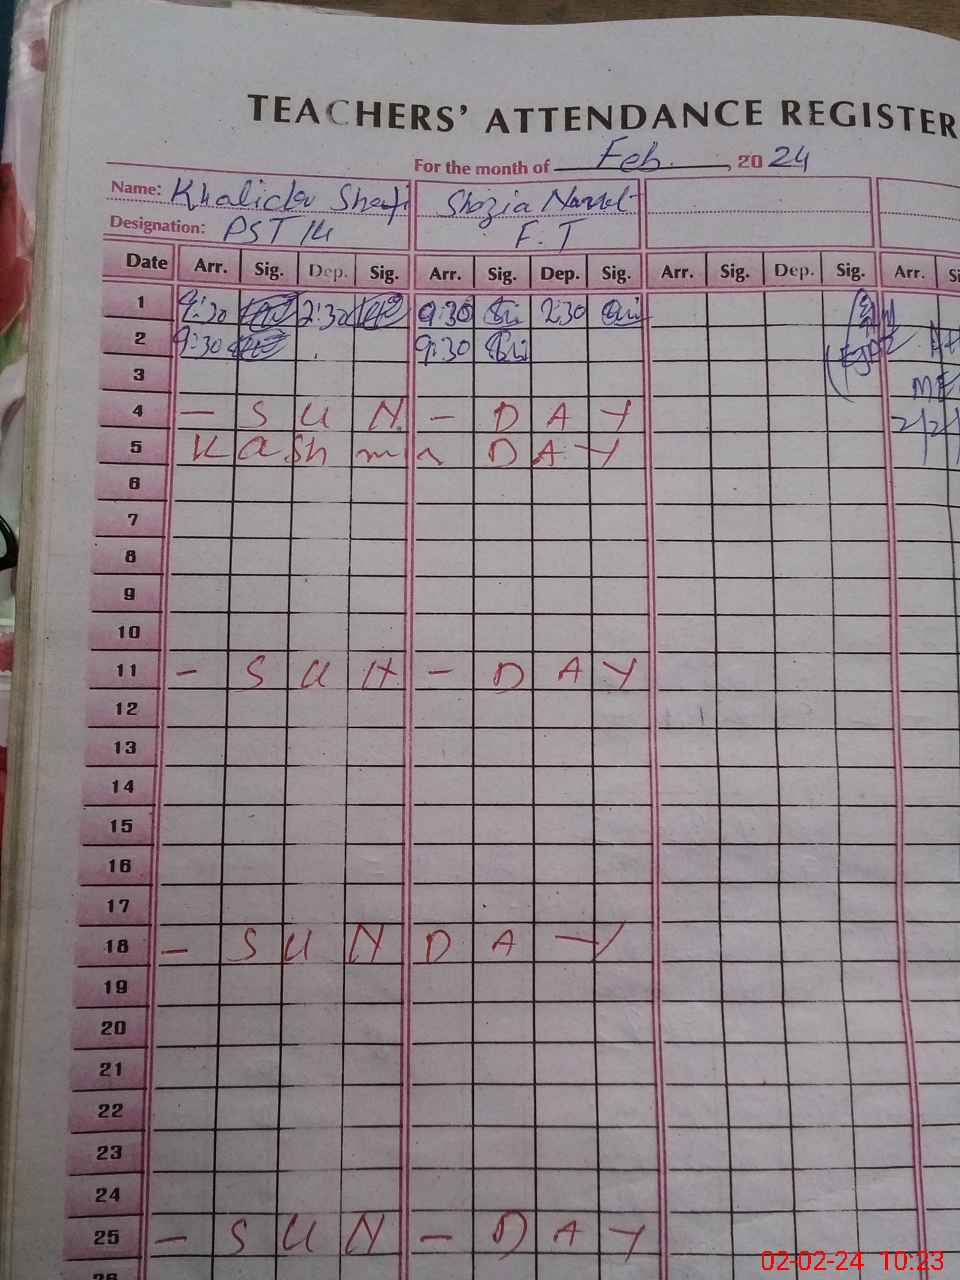 TEACHERS' ATTENDANCE REGISTER
For the month of Feb. , 2024
Name: Khalida Shafi Shazia
Designation: PST 14 F.T
Date Arr. Sig. Dep. Sig. Arr. Sig. Dep. Sig. Arr. Sig. Dep. Sig. Arr. Si
1 9:30 2:30 9:30 2:30
2 9:30 9:30
3
4 - SUN - DAY
5 Kashmir DAY
6
7
8
9
10
11 - SUN - DAY
12
13
14
15
16
17
18 - SUNDAY
19
20
21
22
23
24
25 - SUN - DAY
26
02-02-24 10:23